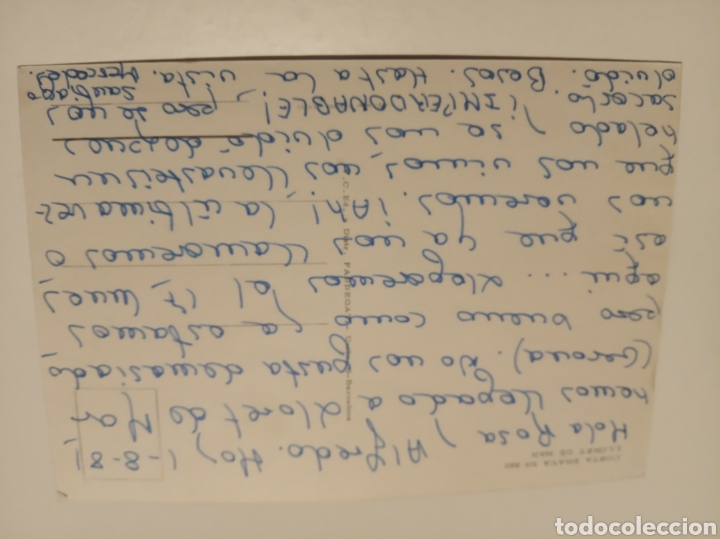 COSTA BRAVA
LLORET DE MAR
Hola Rosa y Alfredo. Hoy 1-8-81
hemos llegado a Lloret de Mar
(Gerona). No nos gusta demasiado,
pero bueno como ya estamos
aquí ... Llegaremos el 17, lunes,
así que ya nos llamaremos o
nos veremos. ¡Ah! la última vez
que nos vimos, nos llevasteis un
helado y se nos olvidó después
sacarlo ¡IMPERDONABLE! pero se nos
olvidó. Besos. Hasta la vista. Santiago y
Mercedes.
Barcelona
todocoleccion